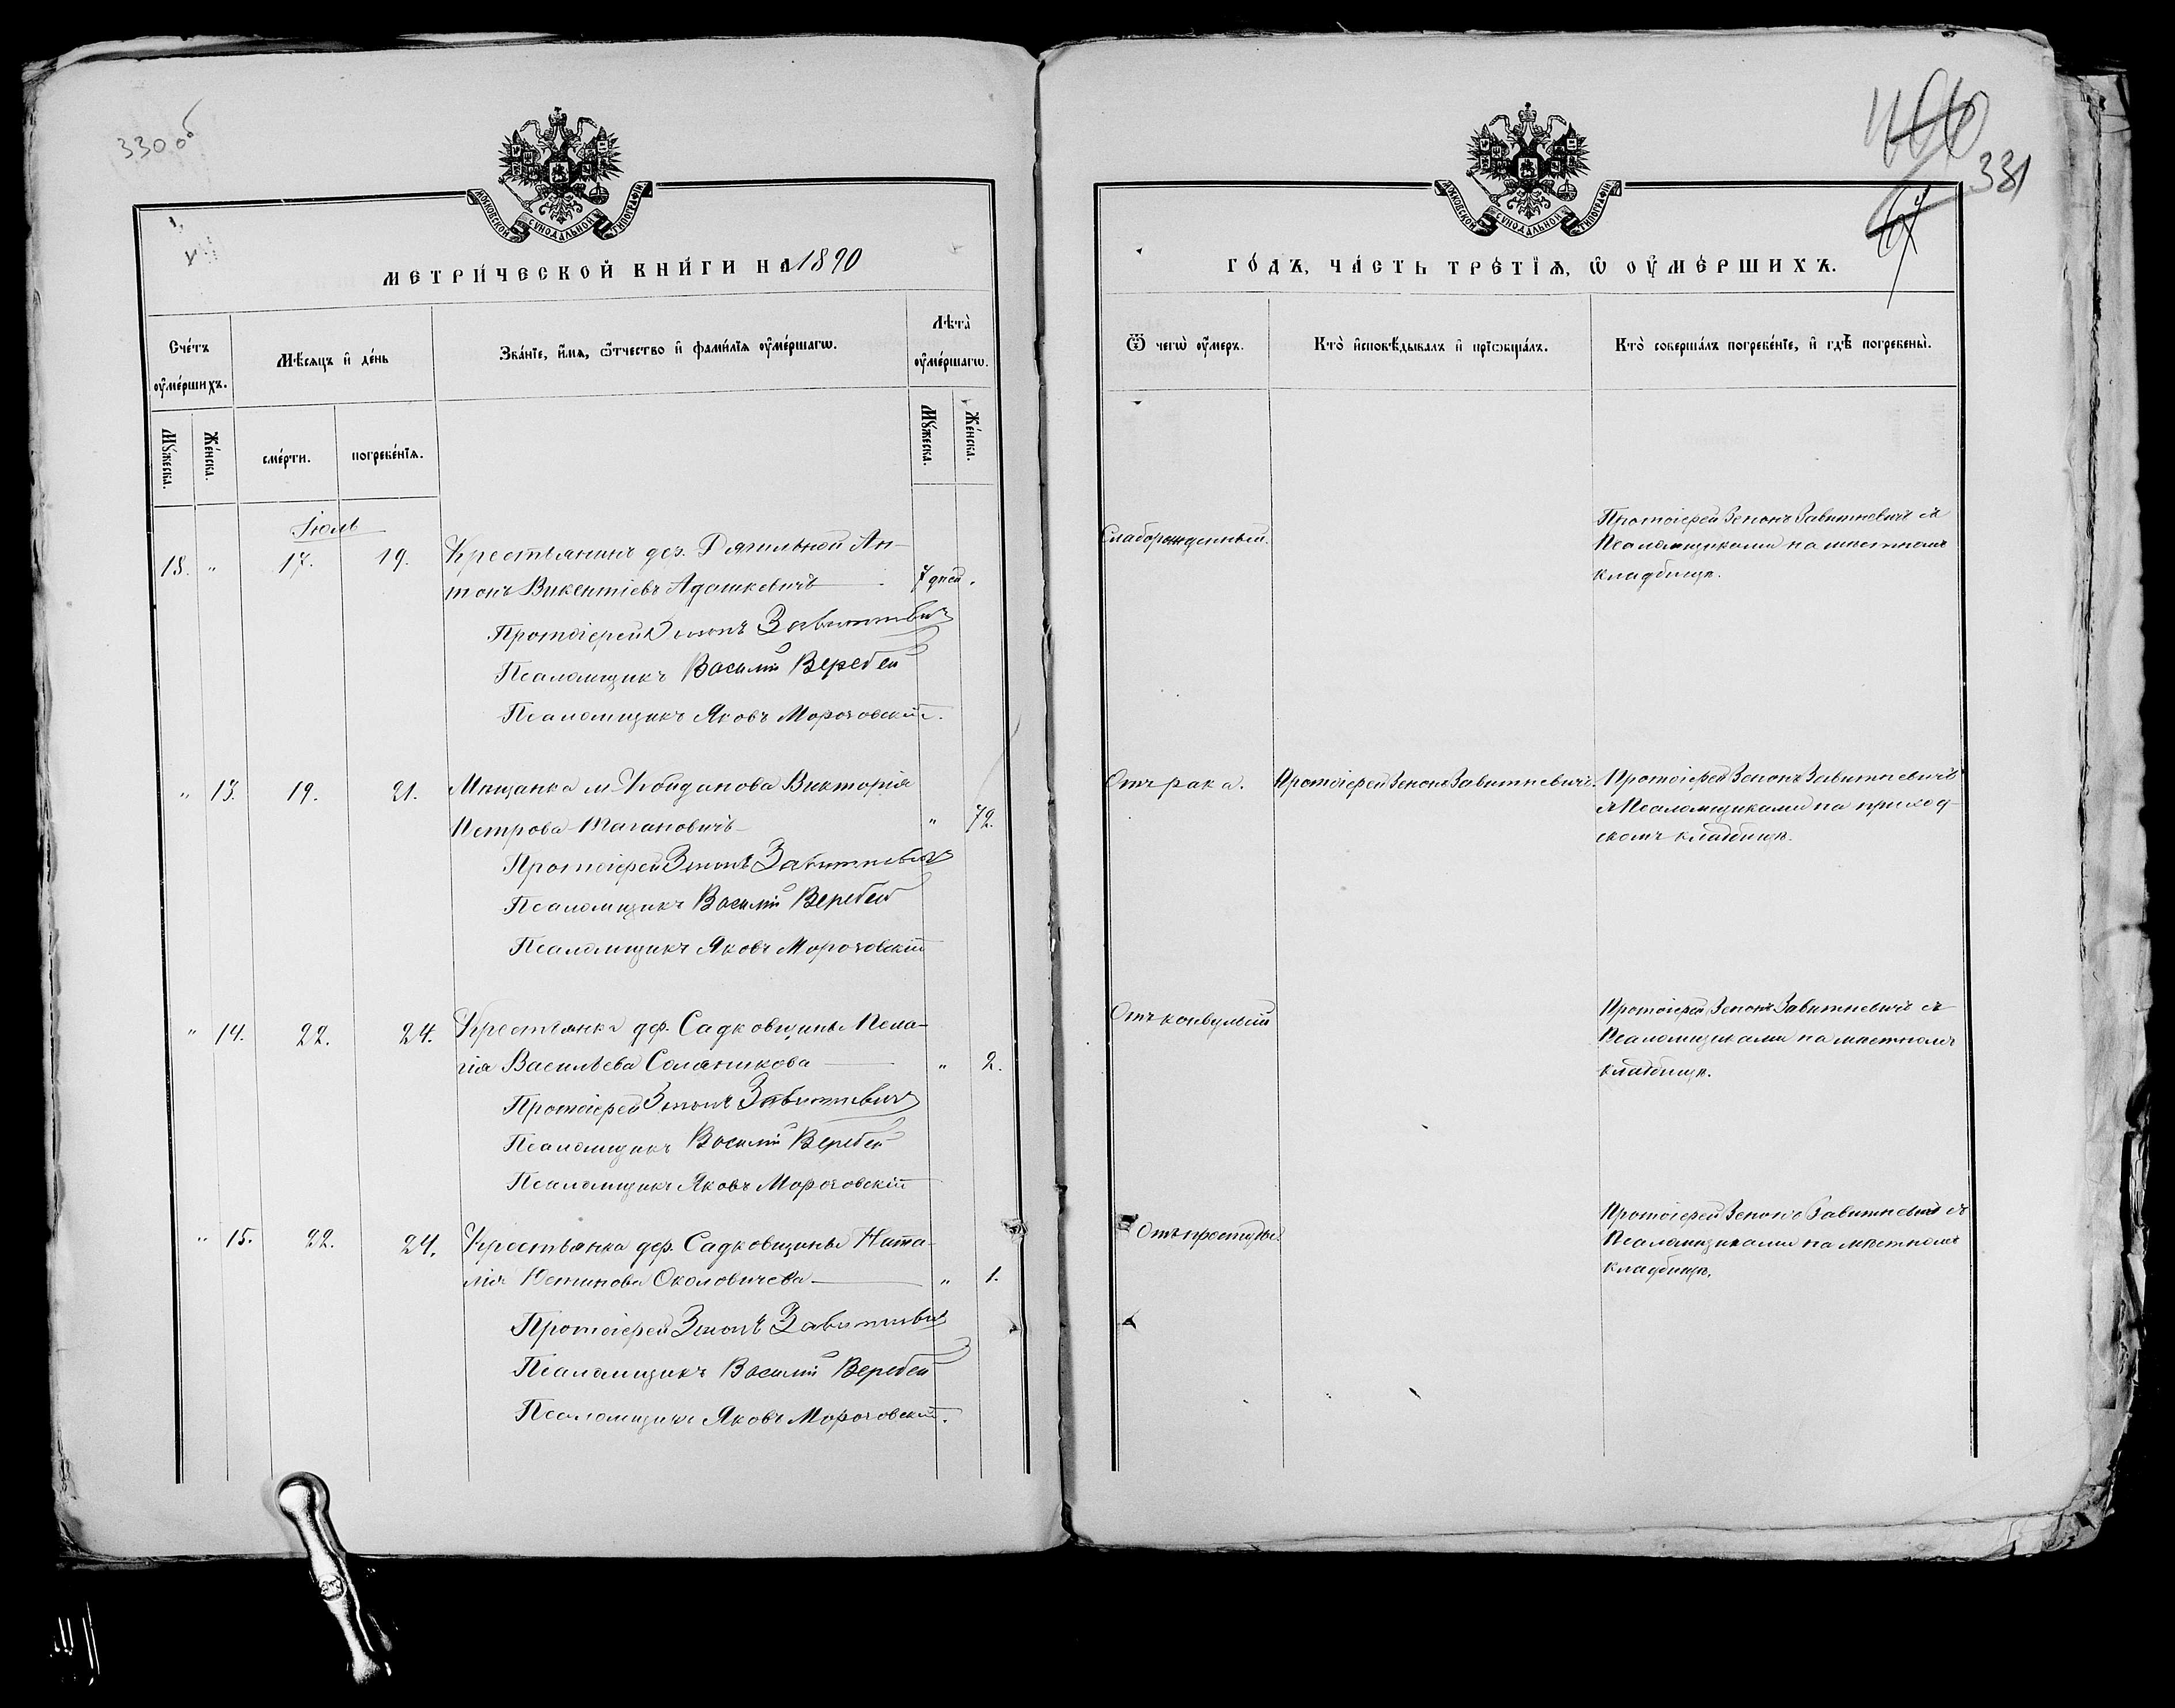 330 об
МОСКОВСКОЙ СѴНОДАЛЬНОЙ ТИПОГРАФІИ
МЕТРИ́ЧЕСКОЙ КНИ́ГИ НА 1890
Сче́тъ оу҆ме́ршихъ.
Мѣ́сяцъ и҆ де́нь
Зва́нїе, и҆́мѧ, ѻ҆́тчество и҆ фами́лїѧ оу҆ме́ршагѡ.
Лѣта̀ оу҆ме́ршагѡ.
Мꙋ́жеска.
Же́нска.
сме́рти.
погребе́нїѧ.
Мꙋ́жеска.
Же́нска.
Іюль
18. " 17. 19. Крестьянинъ дер. Дягильной Ан-
тонъ Викентіевъ Адашкевичъ 7 дней.
Протоіерей Зенонъ Завитневичъ
Псаломщикъ Василій Веребей
Псаломщикъ Яковъ Морочовскій.
" 13. 19. 21. Мѣщанка м. Койданова Викторія
Петрова Маганович " 72.
Протоіерей Зенонъ Завитневичъ
Псаломщикъ Василій Веребей
Псаломщикъ Яковъ Морочовскій
" 14. 22. 24. Крестьянка дер. Садковщины Пела-
гія Васильева Соляникова " 2.
Протоіерей Зенонъ Завитневичъ
Псаломщикъ Василій Веребей
Псаломщикъ Яковъ Морочовскій
" 15. 22. 24. Крестьянка дер. Садковщины Ната-
лія Устинова Околовичева " 1.
Протоіерей Зенонъ Завитневичъ
Псаломщикъ Василій Веребей
Псаломщикъ Яковъ Морочовскій.
331
МОСКОВСКОЙ СѴНОДАЛЬНОЙ ТИПОГРАФІИ
ГО́ДЪ, ЧА́СТЬ ТРЕ́ТЇѦ, Ѡ҆ ОУ҆МЕ́РШИХЪ.
Ѿ чегѡ̀ оу҆́меръ.
Кто̀ и҆сповѣ́дывалъ и҆ прїѡбща́лъ.
Кто̀ соверша́лъ погребе́нїе, и҆ гдѣ̀ погребены̀.
Слаборожденный.
Протоіерей Зенонъ Завитневичъ съ
Псаломщиками на мѣстномъ
кладбищѣ.
Отъ рака.
Протоіерей Зенонъ Завитневичъ.
Протоіерей Зенонъ Завитневичъ
съ Псаломщиками на приход-
скомъ кладбищѣ.
Отъ конвульсій
Протоіерей Зенонъ Завитневичъ съ
Псаломщиками на мѣстномъ
кладбищѣ.
Отъ простуды
Протоіерей Зенонъ Завитневичъ съ
Псаломщиками на мѣстномъ
кладбищѣ.